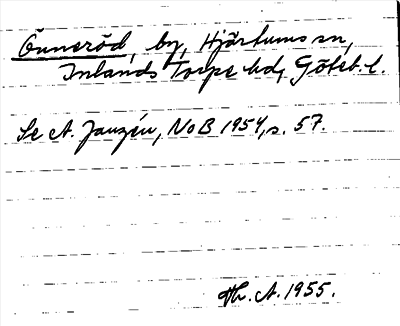 Önneröd, by, Hjärtums sn,
Inlands Torpe hd, Göteb. l.
Se A. Janzén, NoB 1954, s. 57.
Th. A. 1955.